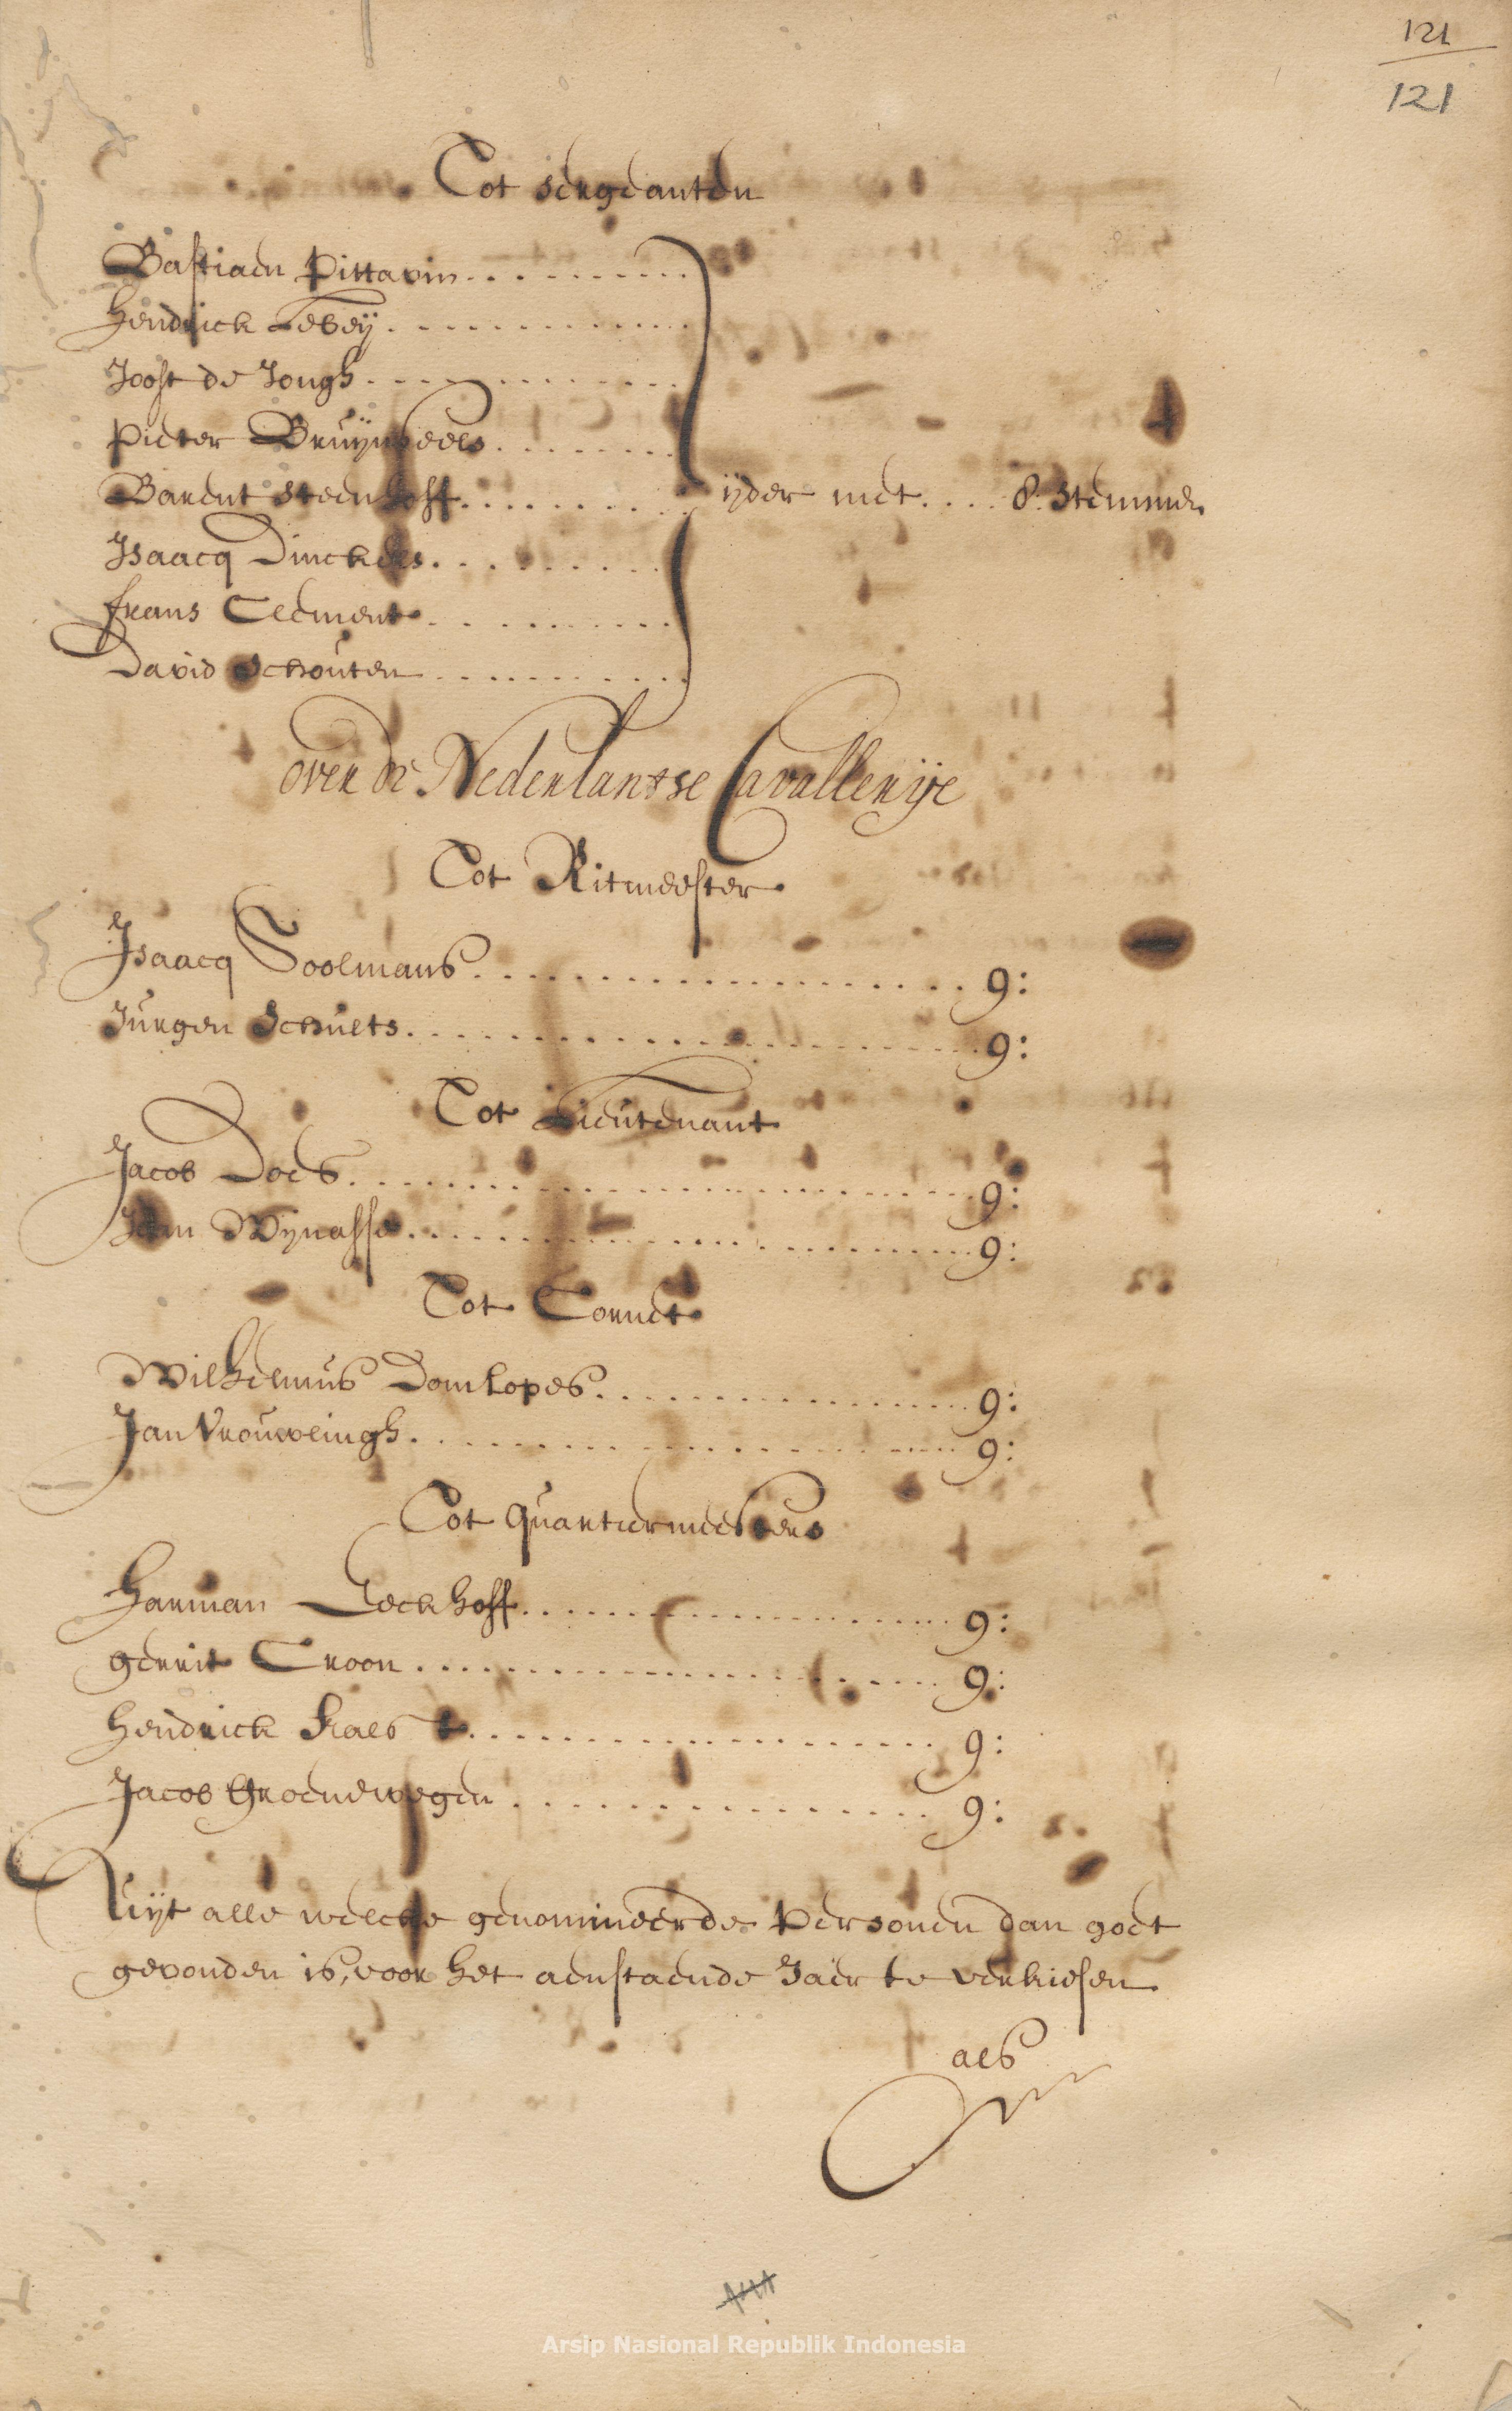 121
121
Tot sergeanten
Bastiaen Pittavin
Hendrick Lebeÿ
Joost de Jongh
Pieter Bruÿnseels
Barent Steenhoff
ijder met 8. Stemmen
Isaacq Dinckels
frans Clement
David Schouten
over de Nederlantse Cavallerije
Tot Ritmeester
Isaacq Soolmans 9:
Jurgen Schults 9:
Tot Lieutenant
Jacob Does 9:
Jan Wijnasse 9:
Tot Cornet
Wilhelmus Domlopes 9:
Jan Vrouwlingh 9:
Tot Quartiermeesters
Harman Leckhoff 9:
gerrit Croon 9:
Hendrick 9:
Jacob Groenewegen 9:
Uijt alle welcke genomineerde Persoonen dan goet
gevonden is, voor het aenstaende Jaer te verkiesen
als
Arsip Nasional Republik Indonesia